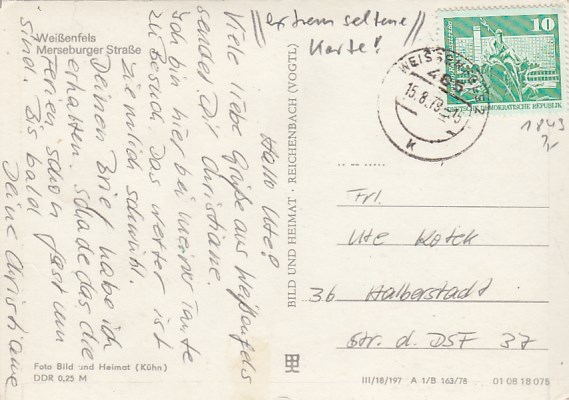 Weißenfels
Merseburger Straße
// extrem seltene //
Karte!
Hallo Ute!
Viele liebe Grüße aus Weißenfels
sendet Dir Christiane.
Ich bin hier bei meiner Tante
zu Besuch. Das Wetter ist
ziemlich schwühl.
Deinen Brief habe ich
erhalten. Schade das die
Ferien schon fast um
sind. Bis bald
Deine Christiane
BILD UND HEIMAT · REICHENBACH (VOGTL)
10
DEUTSCHE DEMOKRATISCHE REPUBLIK
WEISSENFELS 2
485
15.8.79
K
Frl.
Ute Kotek
36 Halberstadt
Str. d. DSF 37
Foto Bild und Heimat (Kühn)
DDR 0,25 M
III/18/197 A 1/B 163/78 01 08 18 078